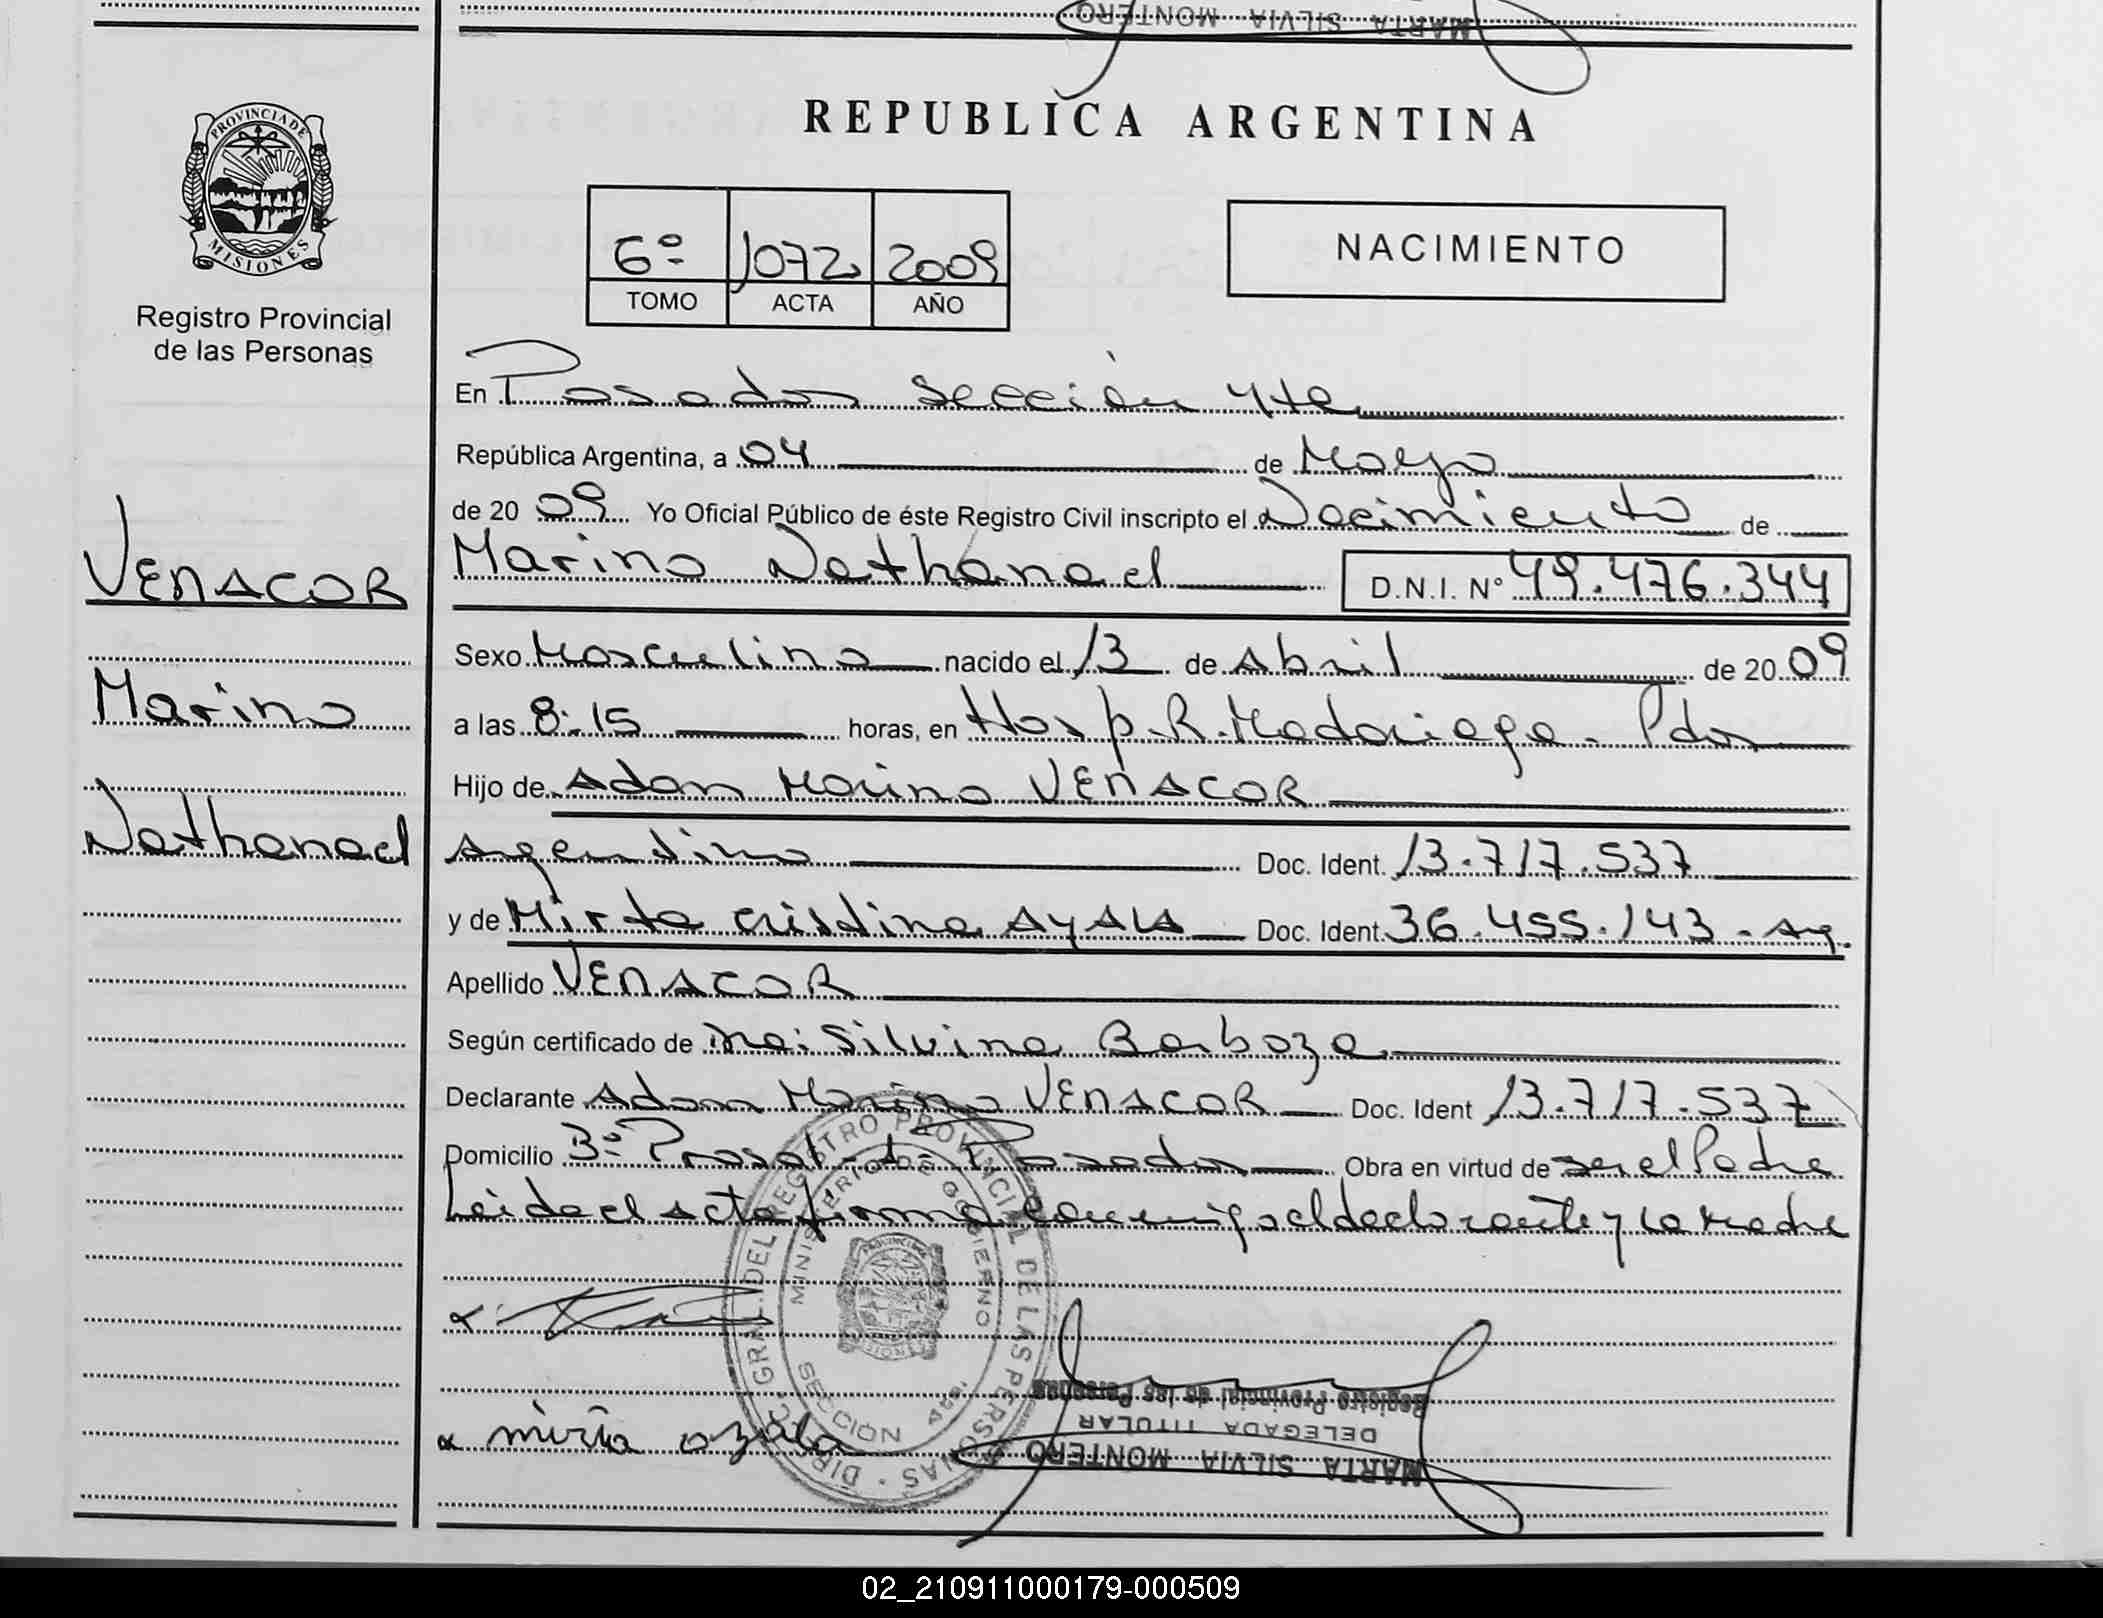 MARTA SILVIA MONTERO
REPUBLICA ARGENTINA
PROVINCIA DE
MISIONES
Registro Provincial
de las Personas
6º 1072 2009
TOMO ACTA AÑO
NACIMIENTO
En Posadas Sección 4ta
República Argentina, a 04 de Mayo
de 2009 Yo Oficial Público de éste Registro Civil inscripto el Nacimiento de
Marino Nathanael D.N.I. Nº 49.476.344
VENACOR
Marino
Nathanael
Sexo Masculino nacido el 13 de Abril de 2009
a las 8:15 horas, en Hosp. R. Madariaga - Pdas
Hijo de Adan Marino VENACOR
Argentino Doc. Ident. 13.717.537
y de Mirta Cristina AYALA Doc. Ident. 36.455.143 - Ag.
Apellido VENACOR
Según certificado de Silvina Barboza
Declarante Adan Marino VENACOR Doc. Ident 13.717.537
Domicilio Posadas Obra en virtud de ser el Padre
Leida el acta firma conmigo el declarante y la Madre
DIREC. GRAL. DEL REGISTRO PROVINCIAL DE LAS PERSONAS
MINISTERIO DE GOBIERNO
SECCION 4ta.
Registro Provincial de las Personas
DELEGADA TITULAR
MARTA SILVIA MONTERO
02_210911000179-000509